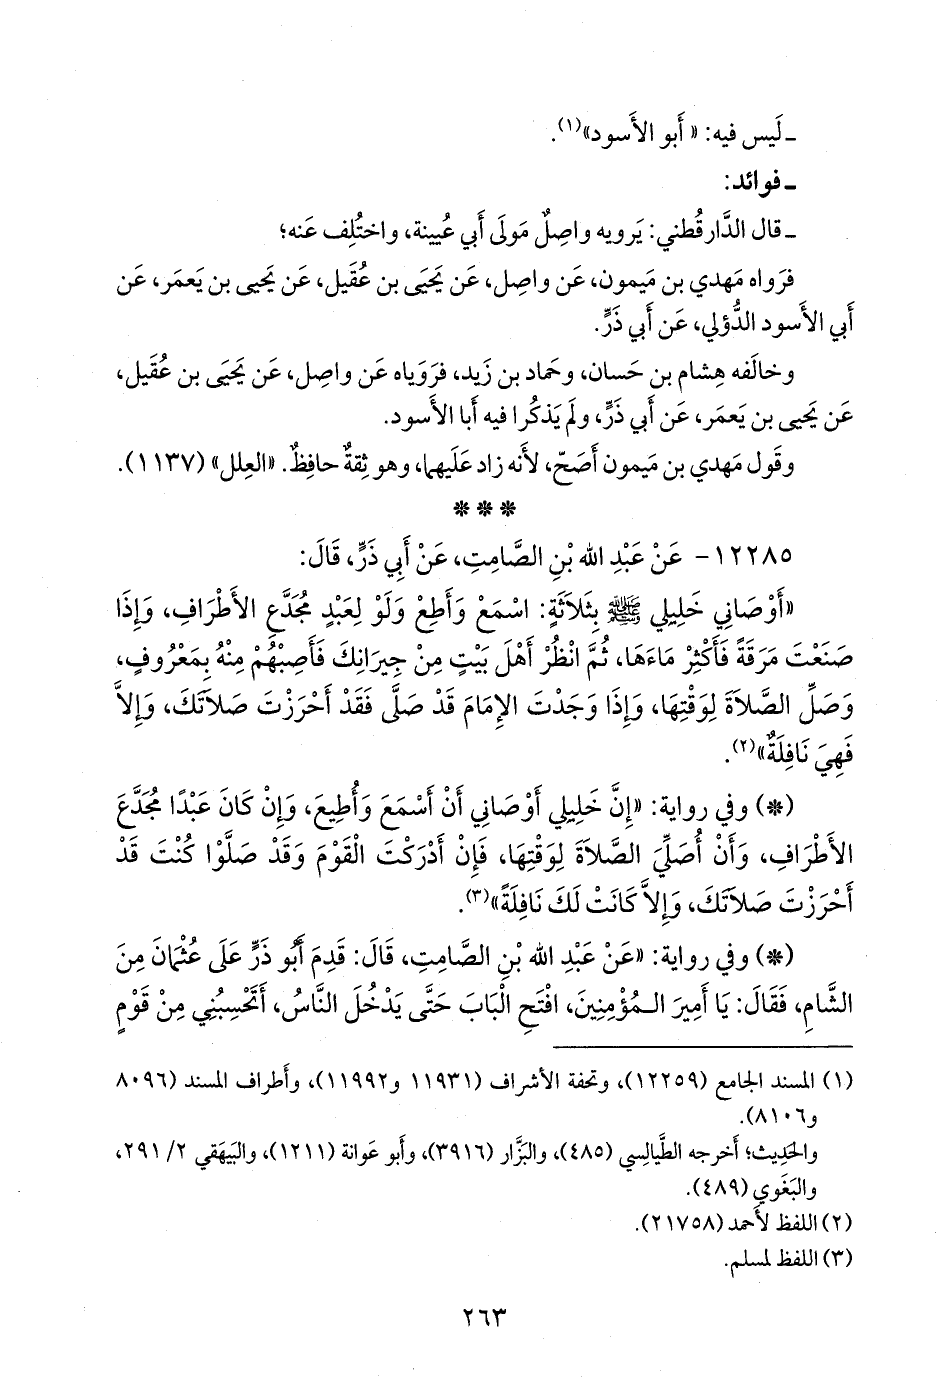 ـ لَيس فيه: «أَبو الأَسود»(١).
ـ فوائد:
ـ قال الدَّارقُطني: يَرويه واصِلٌ مَولَى أَبي عُيينة، واختُلِف عَنه؛
فرَواه مَهدي بن مَيمون، عَن واصِل، عَن يَحيَى بن عُقَيل، عَن يَحيى بن يَعمَر، عَن
أَبي الأَسود الدُّؤلي، عَن أَبي ذَرٍّ.
وخالَفه هِشام بن حَسان، وحَماد بن زَيد، فرَوَياه عَن واصِل، عَن يَحيَى بن عُقَيل،
عَن يَحيى بن يَعمَر، عَن أَبي ذَرٍّ، ولَم يَذكُرا فيه أَبا الأَسود.
وقَول مَهدي بن مَيمون أَصَحّ، لأَنه زاد عَلَيهما، وهو ثِقةٌ حافِظٌ. «العِلل» (١١٣٧).
* * *
١٢٢٨٥- عَنْ عَبْدِ الله بْنِ الصَّامِتِ، عَنْ أَبِي ذَرٍّ، قَالَ:
«أَوْصَانِي خَلِيلِي ﷺ بِثَلاَثَةٍ: اسْمَعْ وَأَطِعْ وَلَوْ لِعَبْدٍ مُجَدَّعِ الأَطْرَافِ، وَإِذَا
صَنَعْتَ مَرَقَةً فَأَكْثِرْ مَاءَهَا، ثُمَّ انْظُرْ أَهْلَ بَيْتٍ مِنْ جِيرَانِكَ فَأَصِبْهُمْ مِنْهُ بِمَعْرُوفٍ،
وَصَلِّ الصَّلاَةَ لِوَقْتِهَا، وَإِذَا وَجَدْتَ الإِمَامَ قَدْ صَلَّى فَقَدْ أَحْرَزْتَ صَلاَتَكَ، وَإِلاَّ
فَهِيَ نَافِلَةٌ»(٢).
(*) وفي رواية: «إِنَّ خَلِيلِي أَوْصَانِي أَنْ أَسْمَعَ وَأُطِيعَ، وَإِنْ كَانَ عَبْدًا مُجَدَّعَ
الأَطْرَافِ، وَأَنْ أُصَلِّيَ الصَّلاَةَ لِوَقْتِهَا، فَإِنْ أَدْرَكْتَ الْقَوْمَ وَقَدْ صَلَّوْا كُنْتَ قَدْ
أَحْرَزْتَ صَلاَتَكَ، وَإِلاَّ كَانَتْ لَكَ نَافِلَةً»(٣).
(*) وفي رواية: «عَنْ عَبْدِ الله بْنِ الصَّامِتِ، قَالَ: قَدِمَ أَبُو ذَرٍّ عَلَى عُثْمَانَ مِنَ
الشَّامِ، فَقَالَ: يَا أَمِيرَ الـمُؤْمِنِينَ، افْتَحِ الْبَابَ حَتَّى يَدْخُلَ النَّاسُ، أَتَحْسِبُنِي مِنْ قَوْمٍ
(١) المسند الجامع (١٢٢٥٩)، وتحفة الأشراف (١١٩٣١ و١١٩٩٢)، وأطراف المسند (٨٠٩٦
و٨١٠٦).
والحَدِيث؛ أَخرجه الطَّيالِسي (٤٨٥)، والبَزَّار (٣٩١٦)، وأَبو عَوانة (١٢١١)، والبَيهَقي ٢/ ٢٩١،
والبَغَوي (٤٨٩).
(٢) اللفظ لأَحمد (٢١٧٥٨).
(٣) اللفظ لمسلم.
٢٦٣